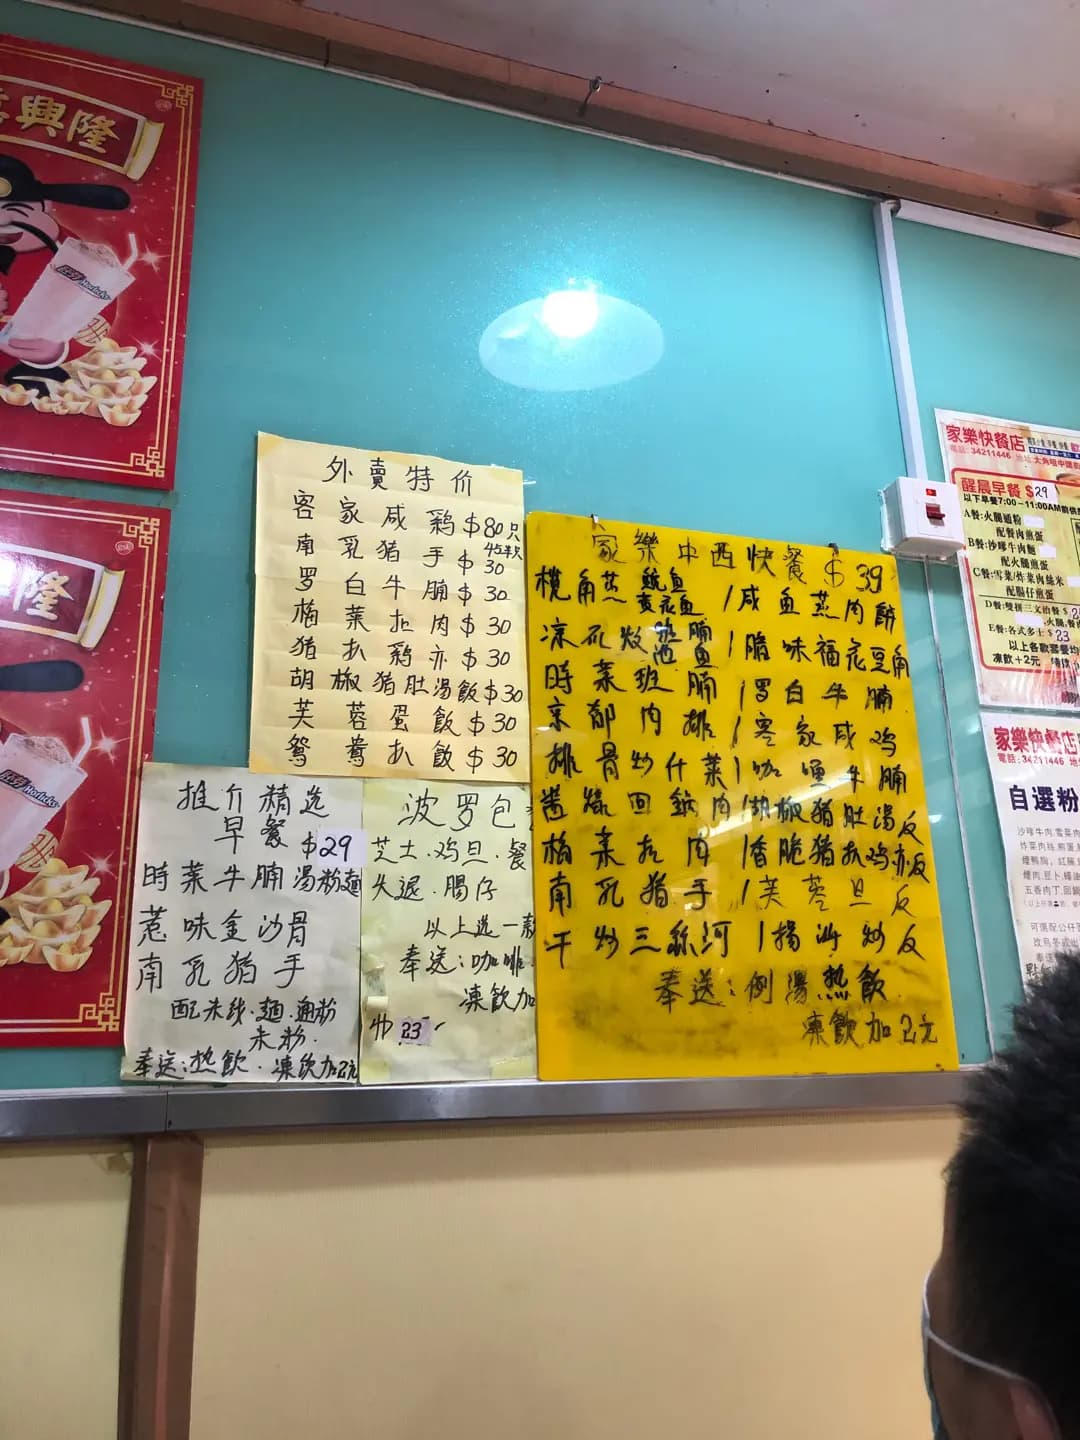 興隆
Horlicks
隆
Horlicks
外賣特价
客家咸鷄$80只
45半只
南乳猪手$30
罗白牛腩$30
梅菜扣肉$30
猪扒鷄亦$30
胡椒猪肚湯飯$30
芙蓉蛋飯$30
鴛鴦扒飯$30
推介精选
早餐$29
時菜牛腩湯粉麵
惹味金沙骨
南乳猪手
配米线.麵.通粉
米粉.
奉送:热飲.凍飲加2元
波罗包
芝士.鸡旦.餐
火退.腸仔
以上选一款
奉送:咖啡.
凍飲加
23
家樂中西快餐$39
欖角蒸鱿鱼
黄花鱼
/咸鱼蒸肉餅
凉瓜炆班腩
/臘味福花豆角
時菜班腩/罗白牛腩
京都肉排/客家咸鸡
排骨炒什菜/咖喱牛腩
回鍋肉/胡椒猪肚湯反
梅菜扣肉/香脆猪扒鸡亦飯
南乳猪手/芙蓉旦反
干炒三絲河/揚洲炒反
奉送:例湯热飲
凍飲加2元
家樂快餐店
電話:34211446
醒晨早餐$29
以下早餐7:00-11:00AM前供應
A餐:火腿通粉
配餐肉煎蛋
B餐:沙嗲牛肉麵
配火腿煎蛋
C餐:雪菜/炸菜肉絲米
配腸仔煎蛋
D餐:雙拼三文治餐$
E餐:各式多士$23
以上各款套餐均
凍飲+2元
家樂快餐店
電話:34211446
自選粉
沙嗲牛肉.雪菜肉